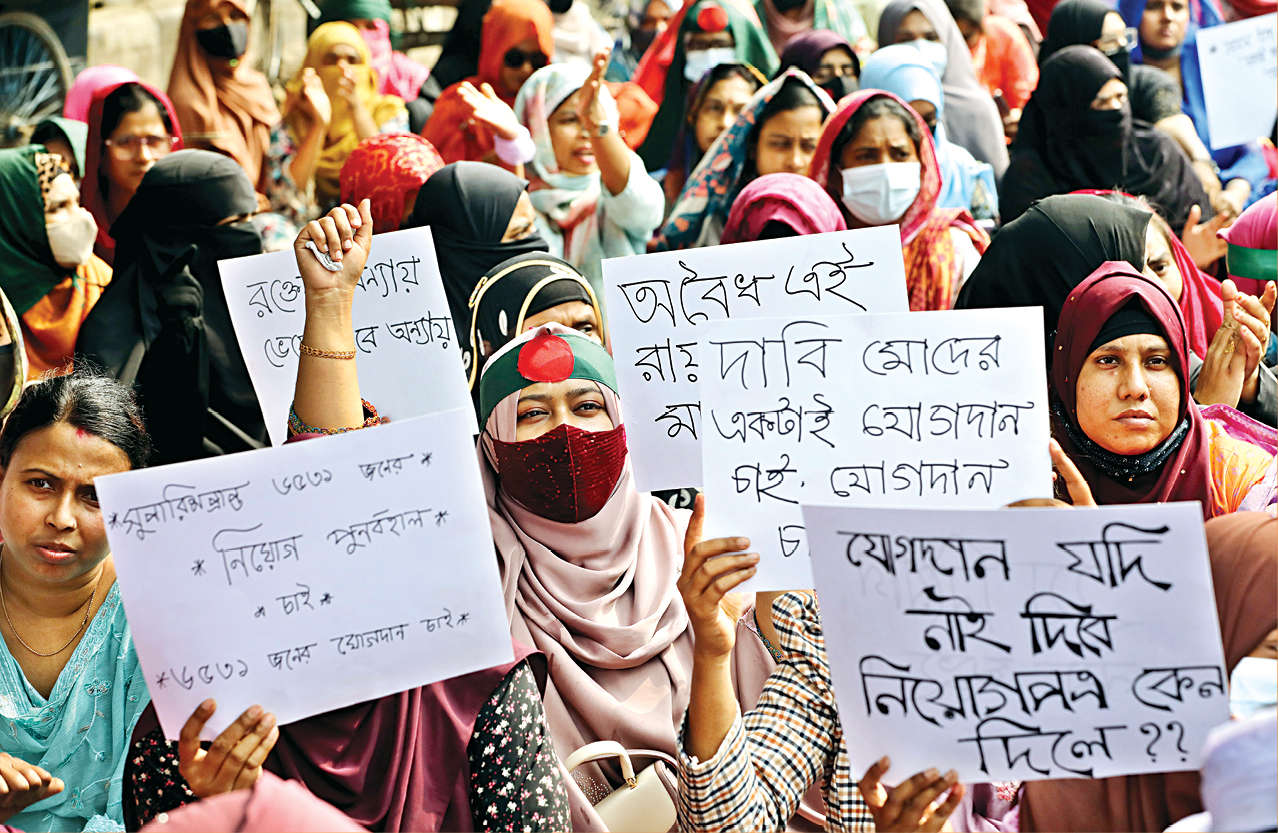 অন্যায়
অন্যায়
অবৈধ এই
রায়
মা
দাবি মোদের
একটাই যোগদান
চাই. যোগদান
*সুপারিশপ্রাপ্ত ৬৫৩১ জনের*
*নিয়োগ পুনর্বহাল*
*চাই*
*৬৫৩১ জনের যোগদান চাই*
যোগদান যদি
নাই দিবে
নিয়োগপত্র কেন
দিলে??